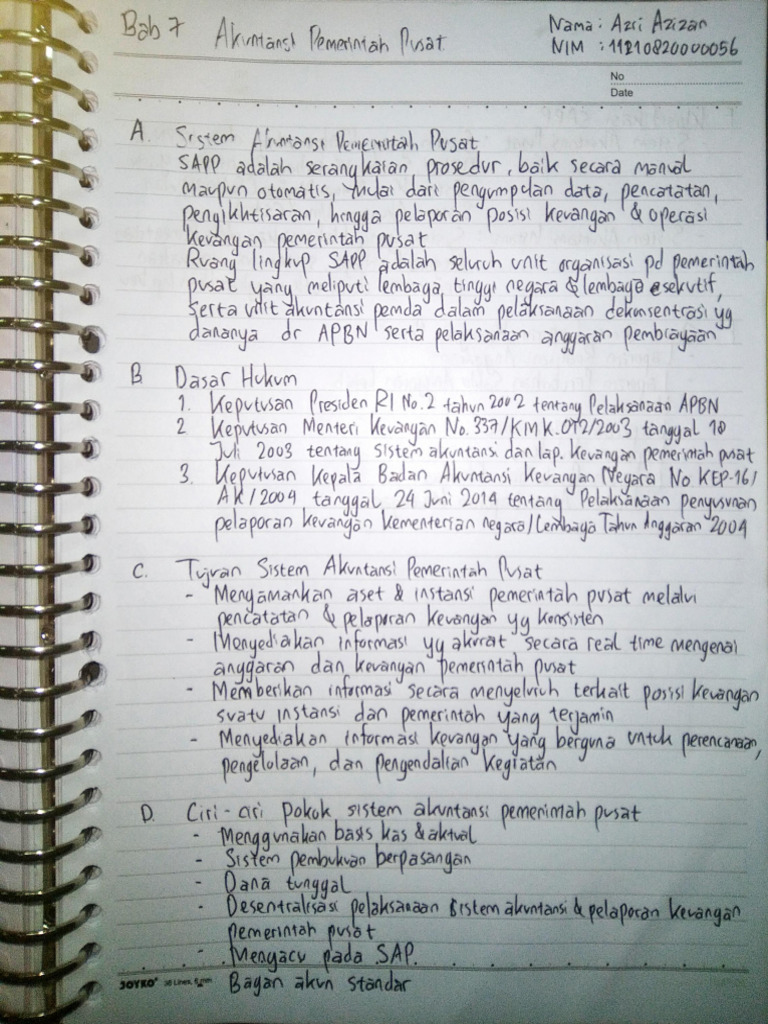 Bab 7 Akuntansi Pemerintah Pusat
Nama : Azri Azizan
NIM : 11210820000056
No
Date
A. Sistem Akuntansi Pemerintah Pusat
SAPP adalah serangkaian prosedur, baik secara manual
maupun otomatis, mulai dari pengumpulan data, pencatatan,
pengikhtisaran, hingga pelaporan posisi keuangan & operasi
keuangan pemerintah pusat
Ruang lingkup SAPP adalah seluruh unit organisasi pd pemerintah
pusat yang meliputi lembaga tinggi negara & lembaga eksekutif,
serta unit akuntansi pemda dalam pelaksanaan dekonsentrasi yg
dananya dr APBN serta pelaksanaan anggaran pembiayaan
B Dasar Hukum
1. Keputusan Presiden RI No.2 tahun 2002 tentang Pelaksanaan APBN
2 Keputusan Menteri Keuangan No. 337/KMK.012/2003 tanggal 18
Juli 2003 tentang Sistem akuntansi dan lap. keuangan pemerintah pusat
3. Keputusan Kepala Badan Akuntansi Keuangan Negara No KEP-16/
AK/2004 tanggal 24 Juni 2014 tentang Pelaksanaan penyusunan
pelaporan keuangan kementerian negara/Lembaga Tahun Anggaran 2004
C. Tujuan Sistem Akuntansi Pemerintah Pusat
- Mengamankan aset & instansi pemerintah pusat melalui
pencatatan & pelaporan keuangan yg konsisten
- Menyediakan informasi yg akurat secara real time mengenai
anggaran dan keuangan pemerintah pusat
- Memberikan informasi secara menyeluruh terkait posisi keuangan
suatu instansi dan pemerintah yang terjamin
- Menyediakan informasi keuangan yang berguna untuk perencanaan,
pengelolaan, dan pengendalian kegiatan
D. Ciri-ciri pokok sistem akuntansi pemerintah pusat
- Menggunakan basis kas & aktual
- Sistem pembukuan berpasangan
- Dana tunggal
- Desentralisasi pelaksanaan sistem akuntansi & pelaporan keuangan
pemerintah pusat
- Mengacu pada SAP.
Bagan akun standar
JOYKO 38 Lines, 6 mm